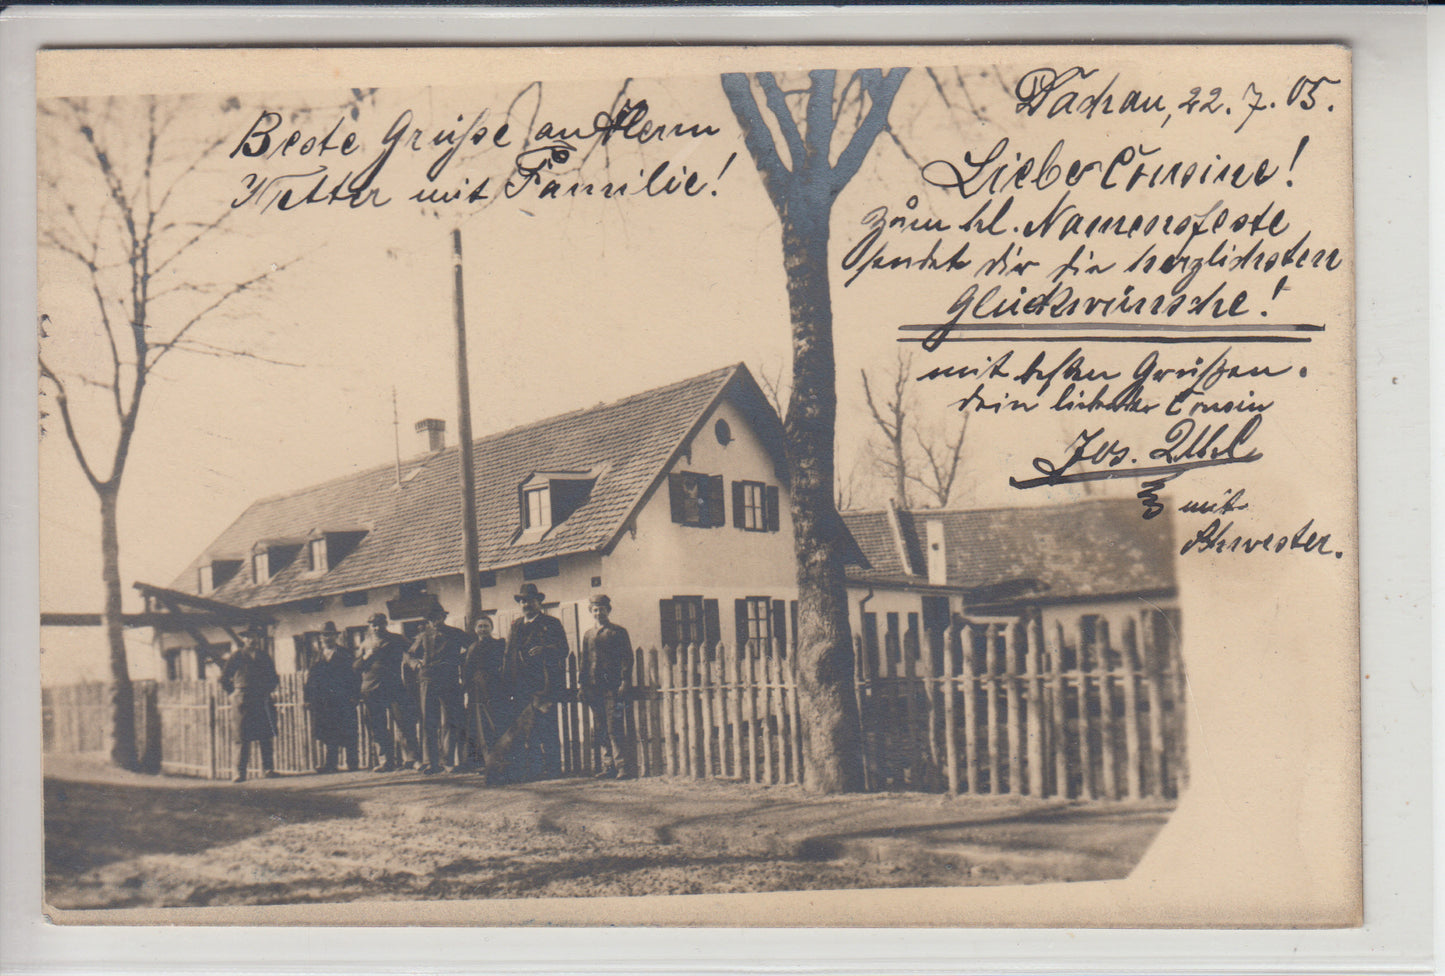 Dachau, 22. 7. 05.
Beste Grüsse an Herrn
Vetter mit Familie!
Liebe Cousine!
Zum hl. Namensfeste
sendet dir die herzlichsten
Glückwünsche!
mit besten Grüßen.
dein liebender Cousin
Jos.
mit
Schwester.